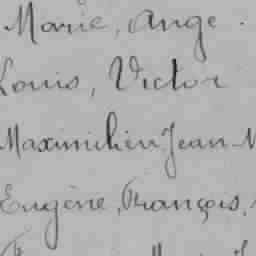 Marie, Ange.
Louis, Victor
Maximilien Jean M
Eugène, François,